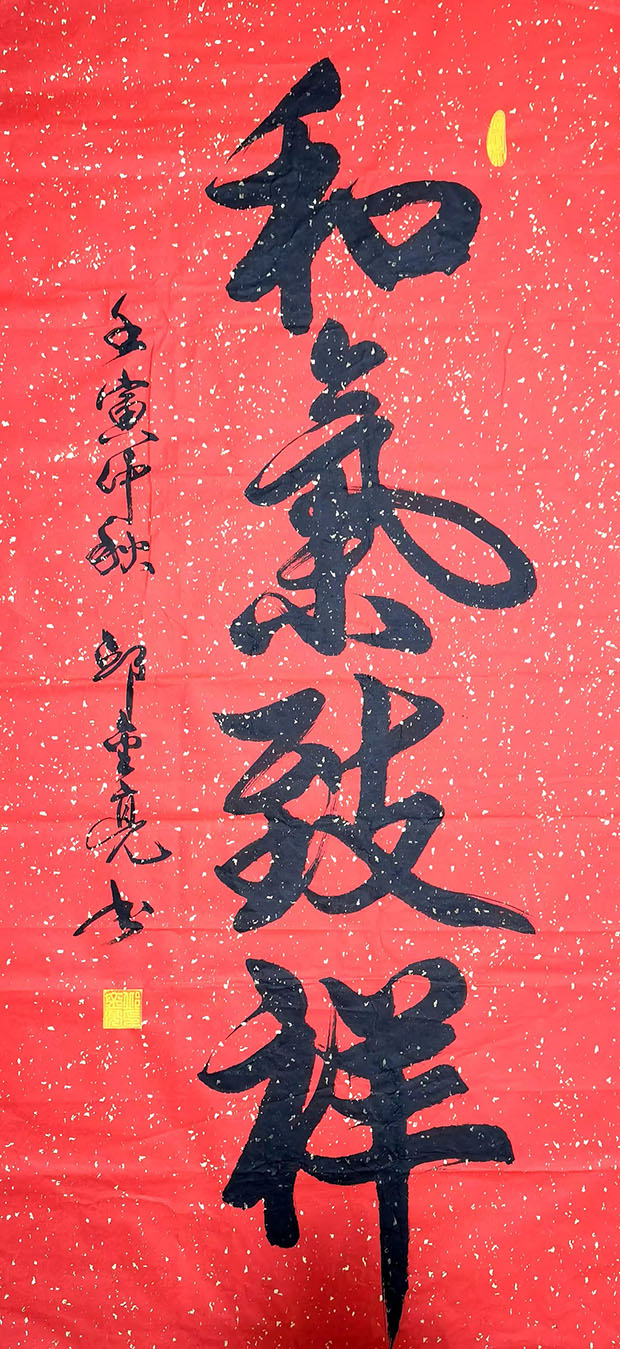 和氣致祥
壬寅仲秋 邱重亮书